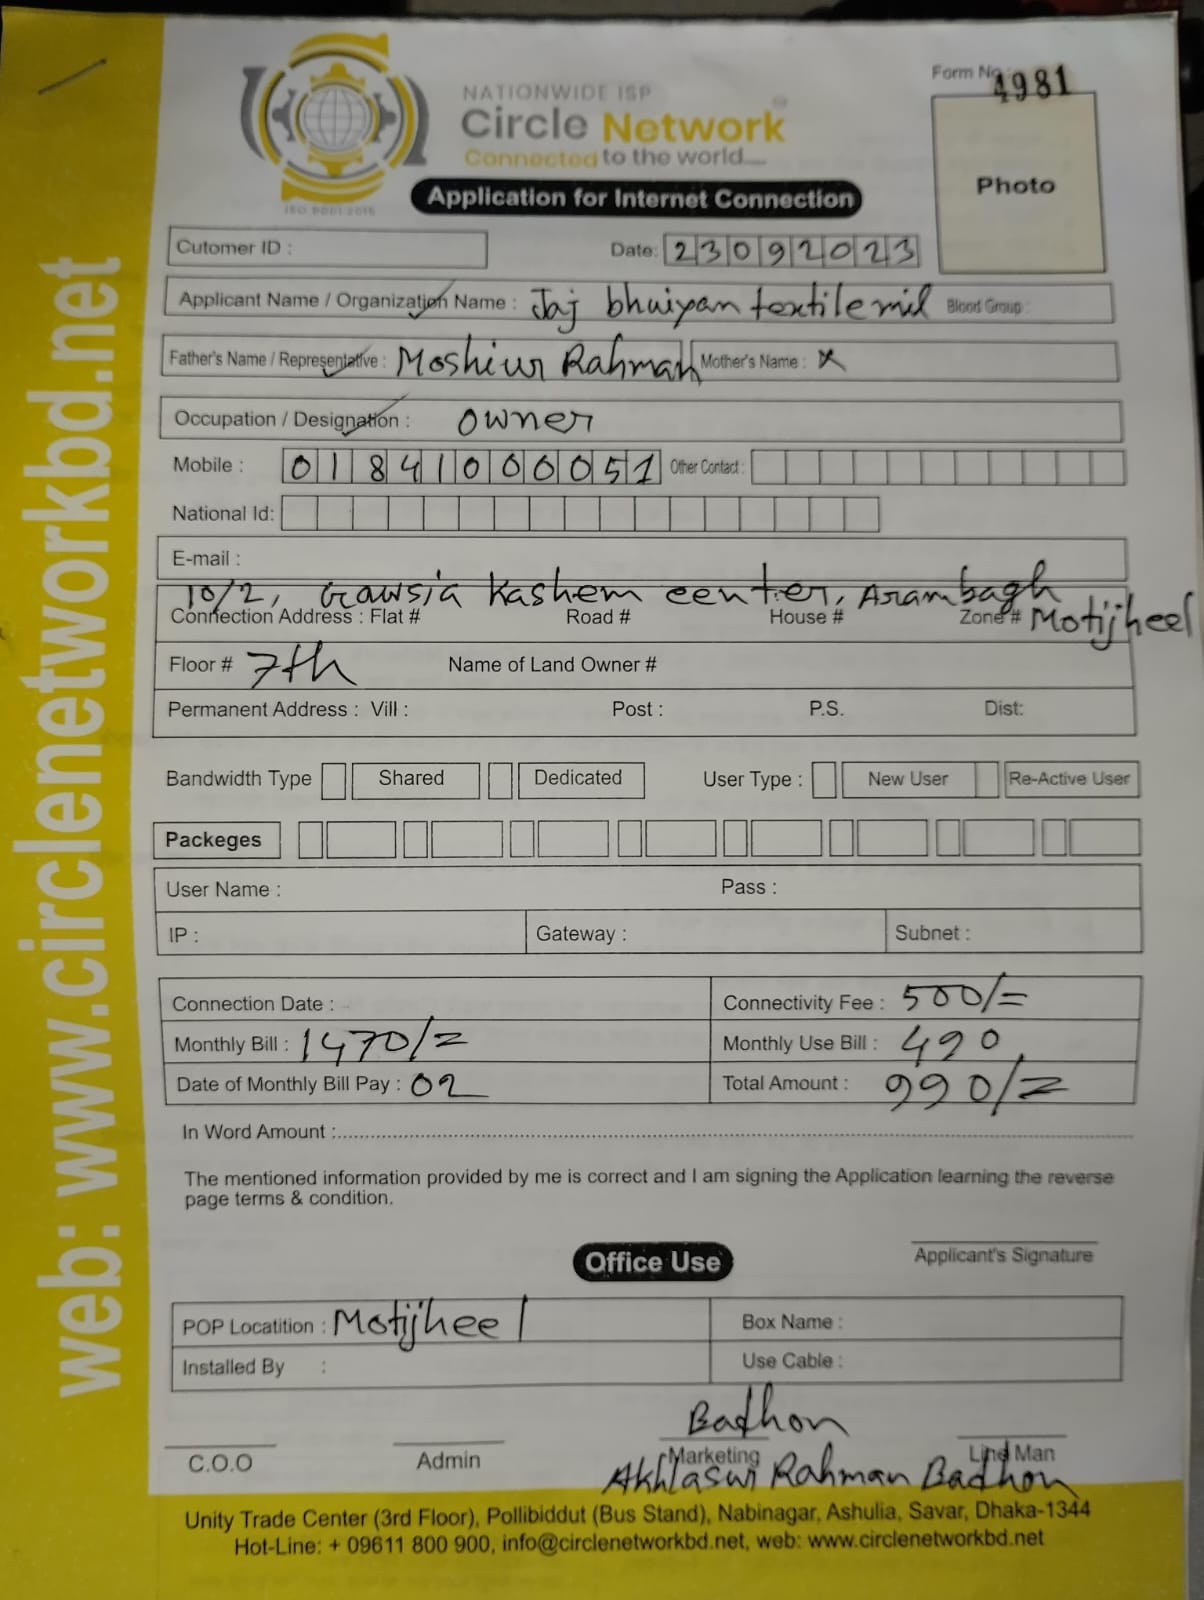 NATIONWIDE ISP
Circle Network
Connected to the world....
ISO 9001:2015
Form No : 4981
Photo
Application for Internet Connection
Cutomer ID :
Date: 23092023
Applicant Name / Organization Name : Jaj bhuiyan textile mil Blood Group :
Father's Name / Representative : Moshiur Rahman Mother's Name : x
Occupation / Designation : Owner
Mobile : 01841000051 Other Contact :
National Id:
E-mail :
10/2, Gawsia Kashem center, Arambagh
Connection Address : Flat # Road # House # Zone # Motijheel
Floor # 7th Name of Land Owner #
Permanent Address : Vill : Post : P.S. Dist:
Bandwidth Type Shared Dedicated User Type : New User Re-Active User
Packeges
User Name : Pass :
IP : Gateway : Subnet :
Connection Date : Connectivity Fee : 500/=
Monthly Bill : 1470/= Monthly Use Bill : 490
Date of Monthly Bill Pay : 02 Total Amount : 990/=
In Word Amount :
The mentioned information provided by me is correct and I am signing the Application learning the reverse
page terms & condition.
Applicant's Signature
Office Use
POP Locatition : Motijheel Box Name :
Installed By : Use Cable :
Badhon
C.O.O Admin Marketing Line Man
Akhlasur Rahman Badhon
Unity Trade Center (3rd Floor), Pollibiddut (Bus Stand), Nabinagar, Ashulia, Savar, Dhaka-1344
Hot-Line: + 09611 800 900, info@circlenetworkbd.net, web: www.circlenetworkbd.net
web: www.circlenetworkbd.net